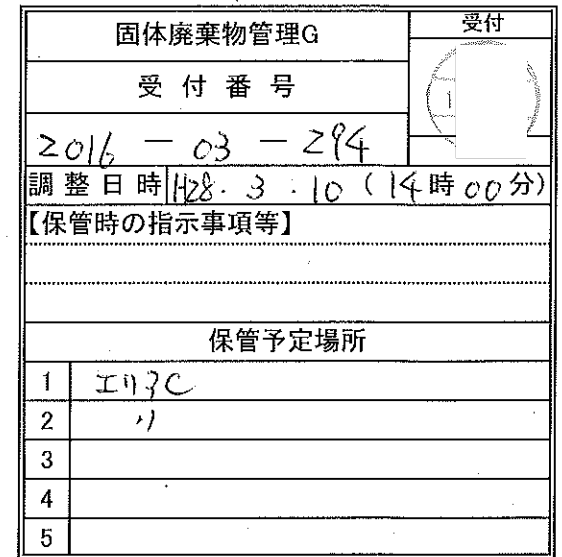 固体廃棄物管理G
受付
受付番号
1
2016-03-294
調整日時 H28.3.10(14時00分)
【保管時の指示事項等】
保管予定場所
1 エリアC
2 〃
3
4
5